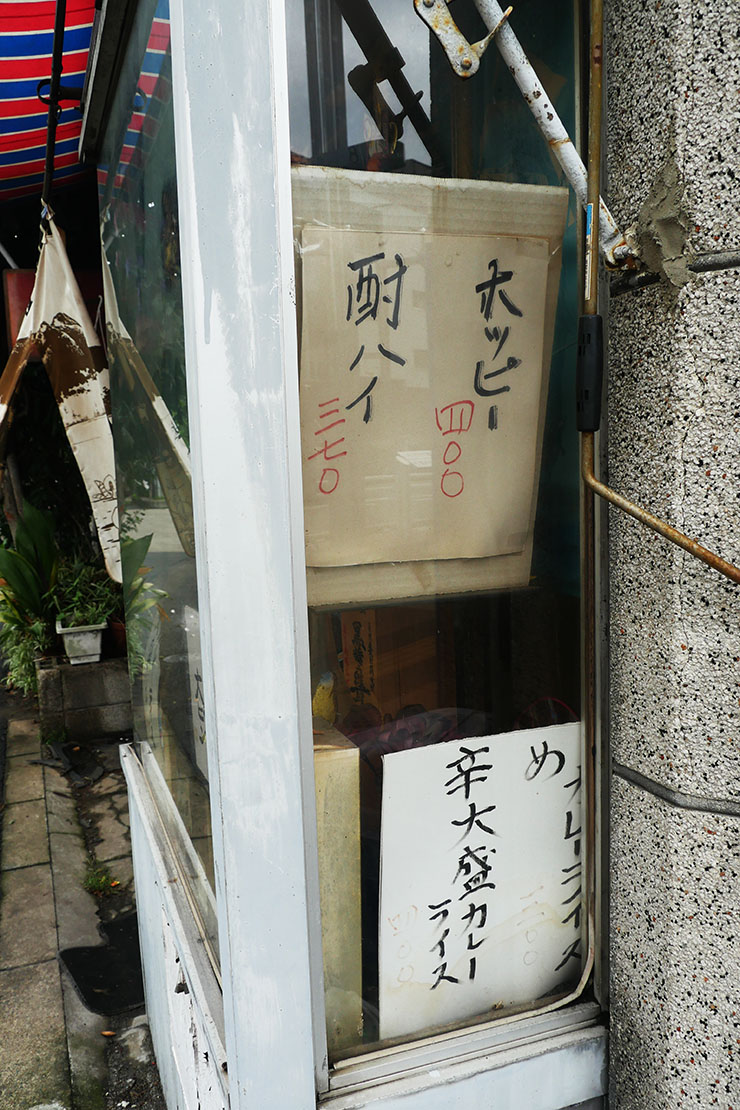 ホッピー
四〇〇
酎ハイ
三七〇
め
カレーライス
辛大盛カレー
ライス
四〇〇